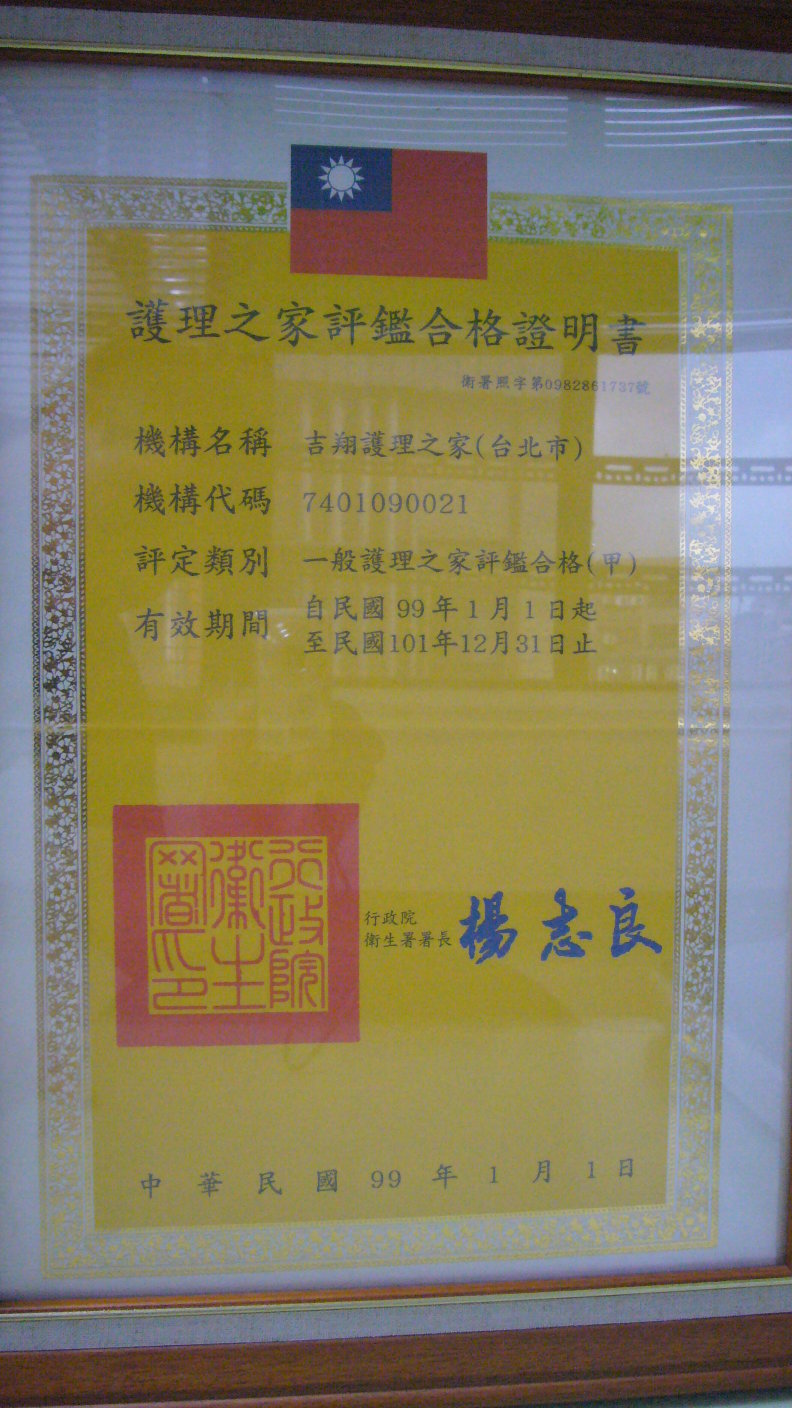 護理之家評鑑合格證明書
衛署照字第0982861737號
機構名稱 吉翔護理之家(台北市)
機構代碼 7401090021
評定類別 一般護理之家評鑑合格(甲)
有效期間 自民國 99年 1 月 1 日起
至民國101年12月31日止
行政院衛生署印
行政院
衛生署署長 楊志良
中華民國 99 年 1 月 1 日